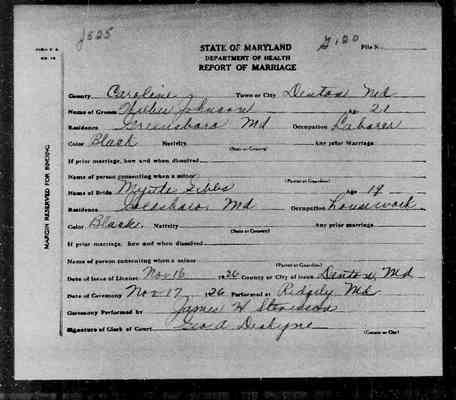 J525
G120 File No.
STATE OF MARYLAND
DEPARTMENT OF HEALTH
REPORT OF MARRIAGE
MARGIN RESERVED FOR BINDING
County Caroline Town or City Denton Md
Name of Groom Johnson Age 21
Residence Greensboro Md Occupation Laborer
Color Black Nativity (State or Country) Any prior Marriage
If prior marriage, how and when dissolved
Name of person consenting when a minor (Parent or Guardian)
Name of Bride Gibbs Age 19
Residence Md Occupation Housework
Color Black Nativity (State or Country) Any prior marriage
If prior marriage, how and when dissolved
Name of person consenting when a minor (Parent or Guardian)
Date of Issue of License Nov 16 1926 County or City of issue Denton, Md
Date of Ceremony Nov 17 1926 Performed at Ridgely Md
Ceremony Performed by James H
Signature of Clerk of Court Geo A (County or City)